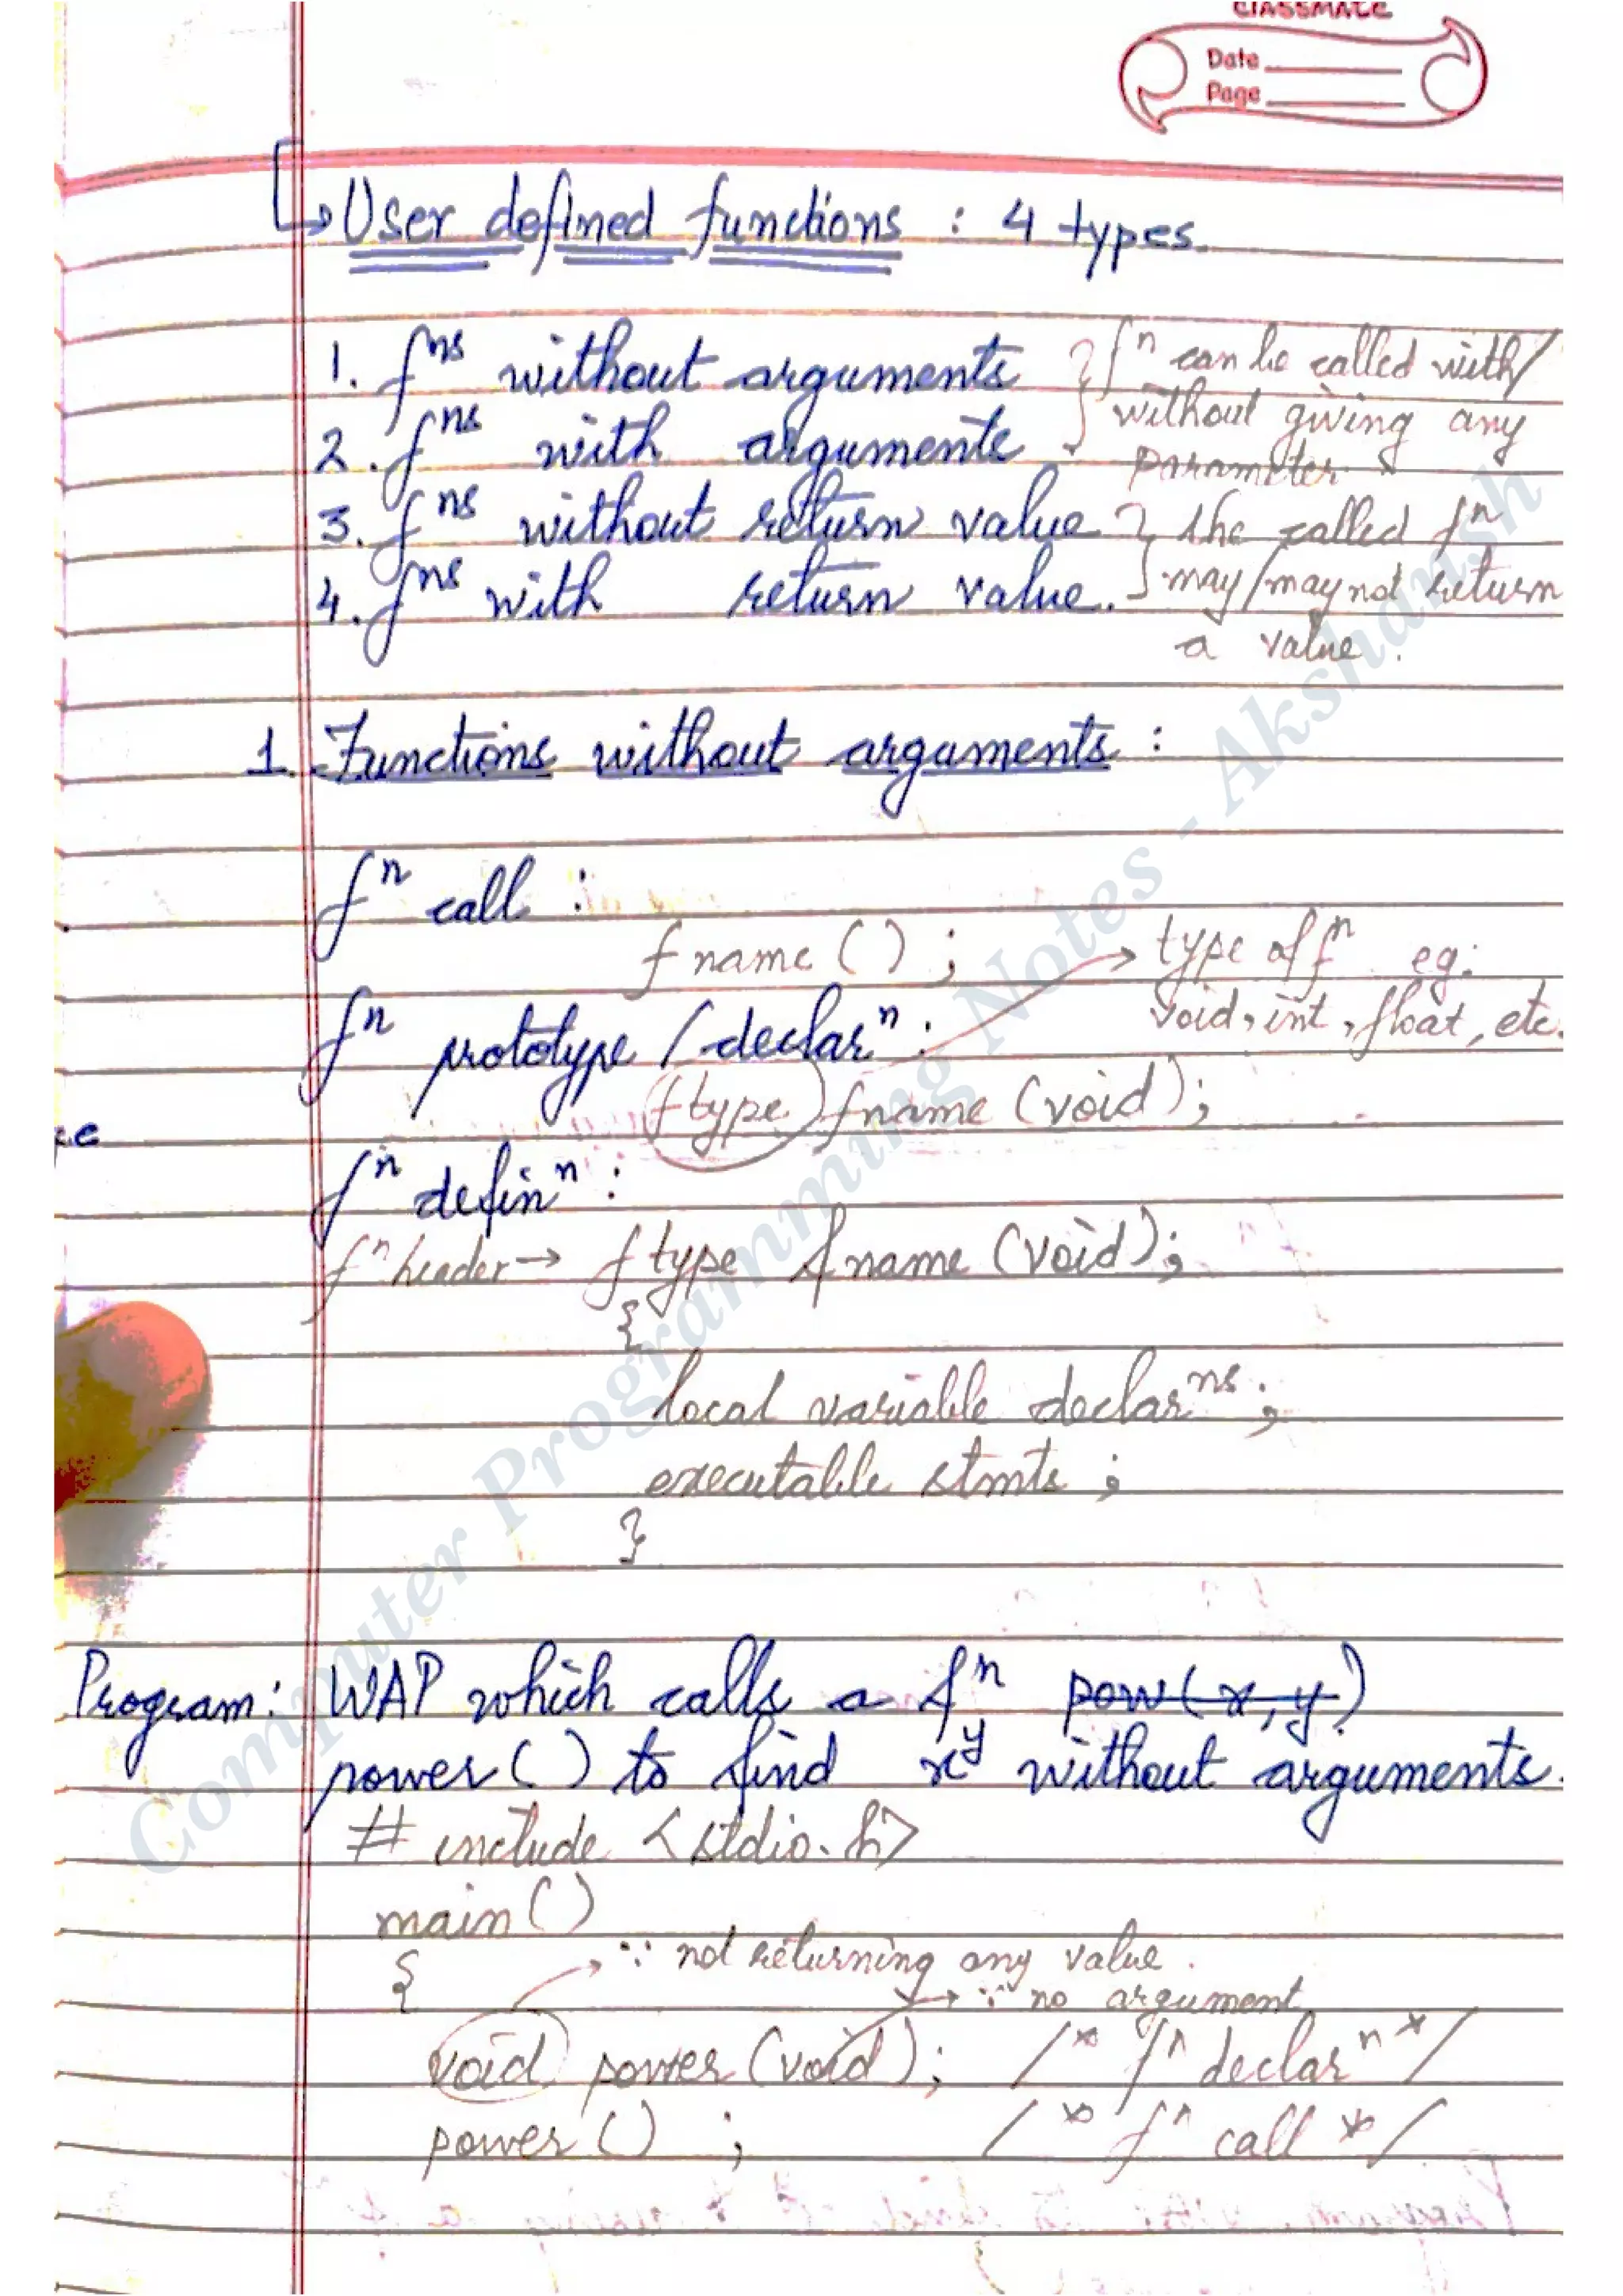 classmate
Date
Page
↳ User defined functions : 4 types.
1. fⁿˢ without arguments } fⁿ can be called with/
without giving any
2. fⁿˢ with arguments
parameter.
3. fⁿˢ without return value } the called fⁿ
4. fⁿˢ with return value. may/may not return
a value.
1. Functions without arguments :
fⁿ call :
fname ( ) ; → type of fⁿ eg:
void, int, float, etc.
fⁿ prototype / declarⁿ :
ftype fname (void);
fⁿ definⁿ :
fⁿ header → ftype fname (void);
{
local variable declarⁿˢ ;
executable stmts ;
}
Program: WAP which calls a fⁿ pow(x,y)
power( ) to find xʸ without arguments.
# include <stdio.h>
main( )
{ → ∵ not returning any value.
→ ∵ no argument
void power (void); /* fⁿ declarⁿ */
power ( ) ; /* fⁿ call */
Computer Programming Notes - Akshansh